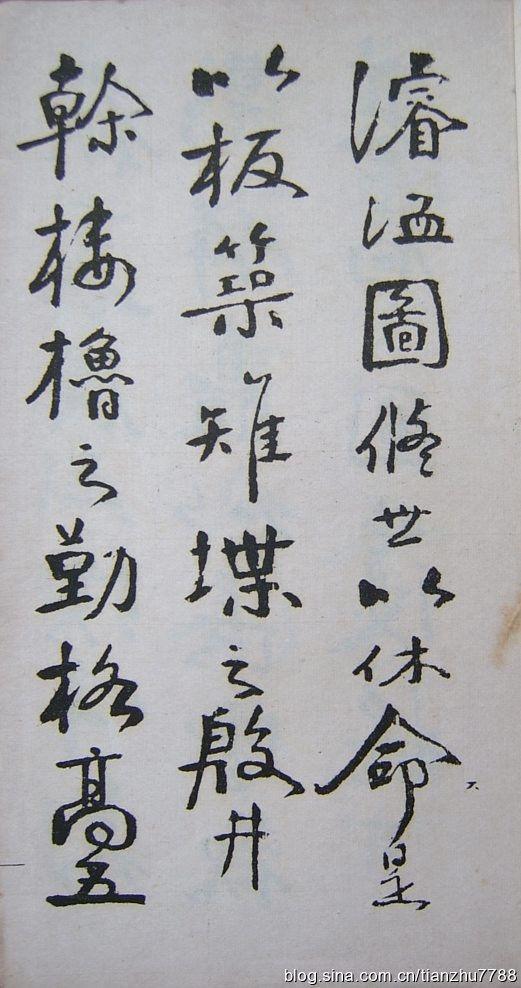 濬洫圖脩世以休命是
以板築雉堞之殷井
榦棲櫓之勤格高五
blog.sina.com.cn/tianzhu7788